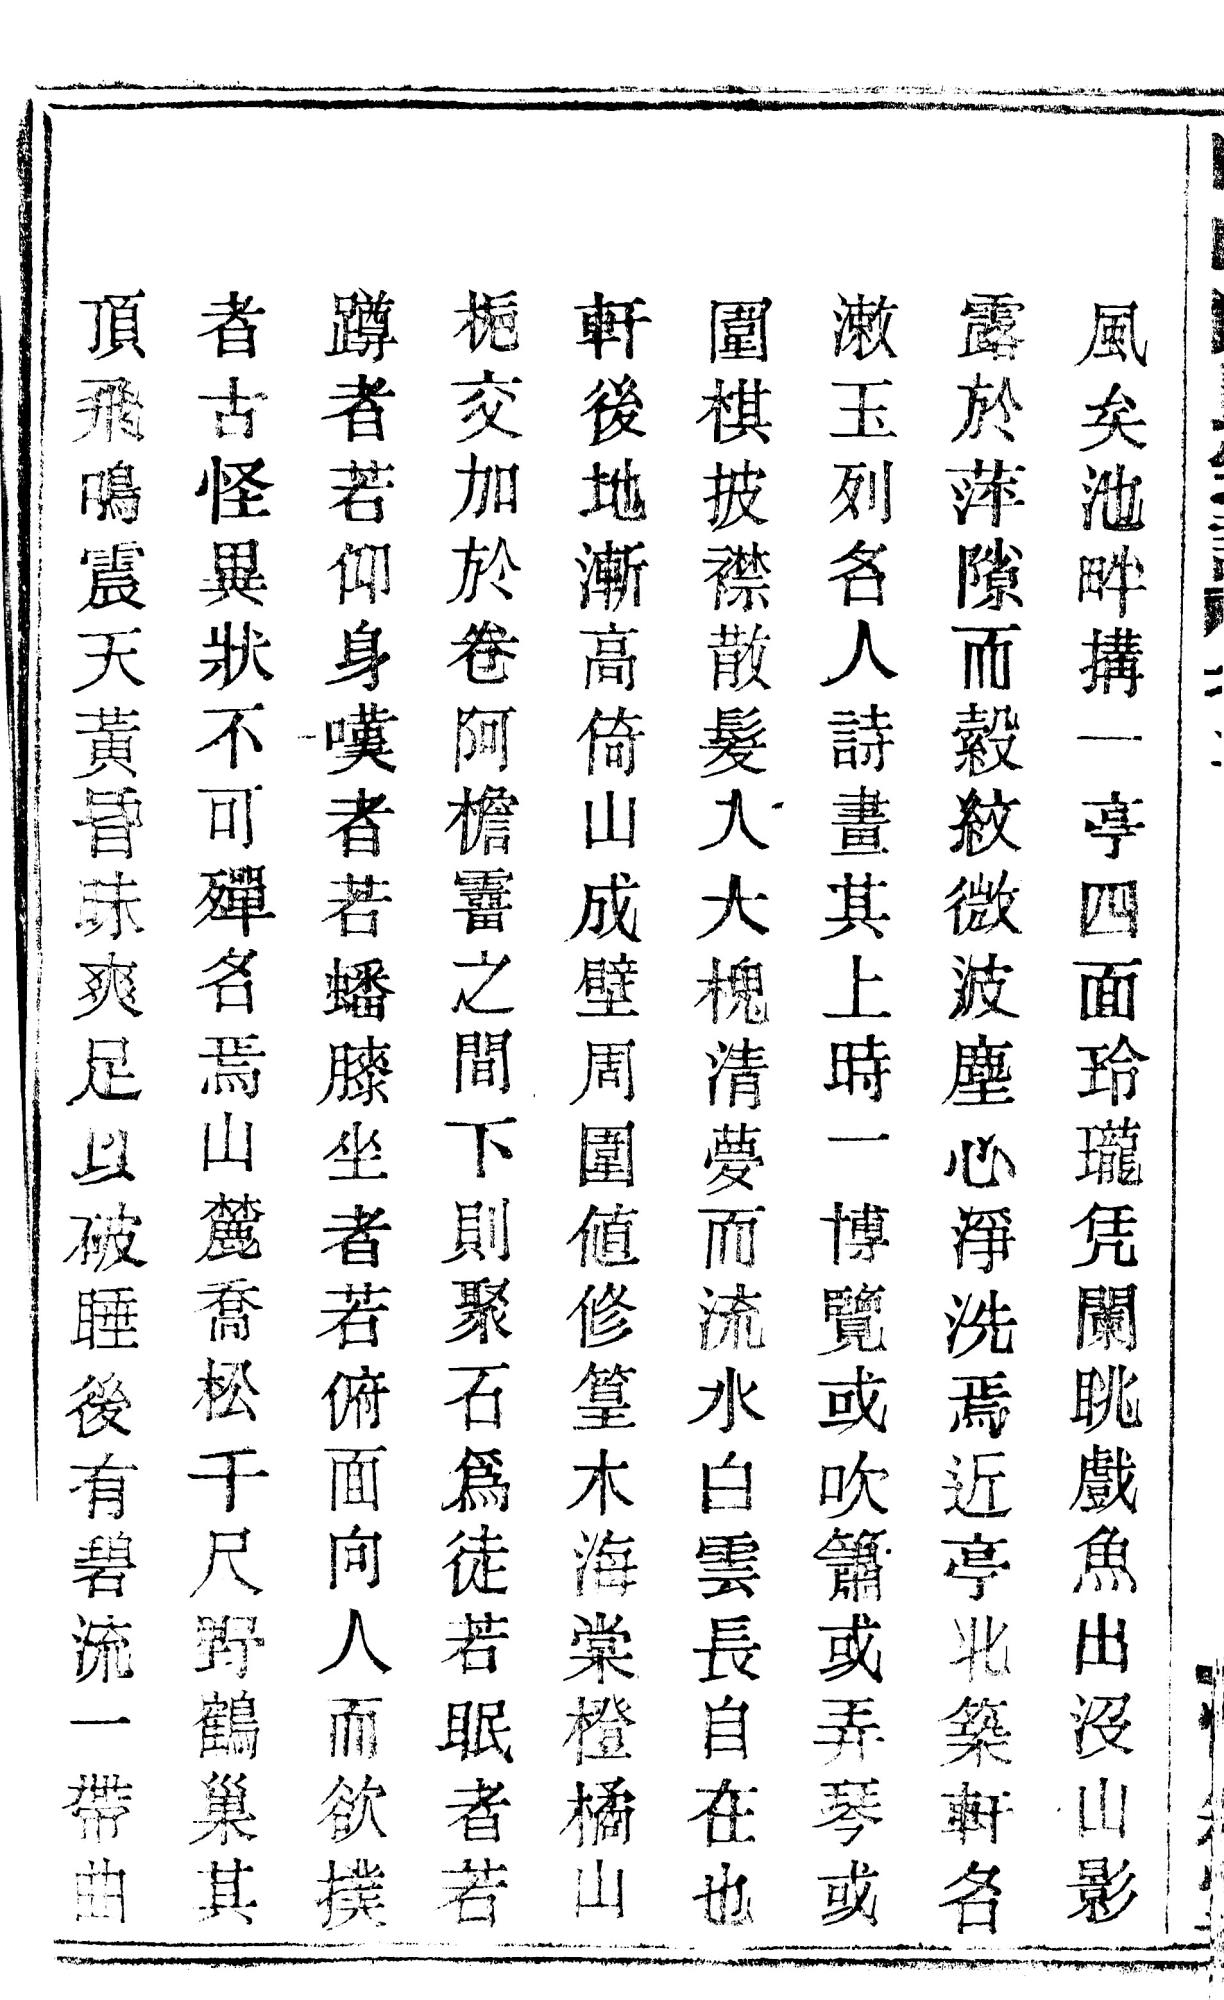 風矣池畔搆一亭四面玲瓏凭闌眺戲魚出沒山影
露於萍隙而縠紋微波塵心淨洗焉近亭北築軒名
漱玉列名人詩畫其上時一博覽或吹簫或弄琴或
圍棋披襟散髮入大槐清夢而流水白雲長自在也
軒後地漸高倚山成壁周圍値修篁木海棠橙橘山
梔交加於卷阿檐霤之間下則聚石爲徒若眠者若
蹲者若仰身嘆者若蟠膝坐者若俯面向人而欲撲
者古怪異狀不可殫名焉山麓喬松千尺野鶴巢其
頂飛鳴震天黃昏昧爽足以破睡後有碧流一帶曲